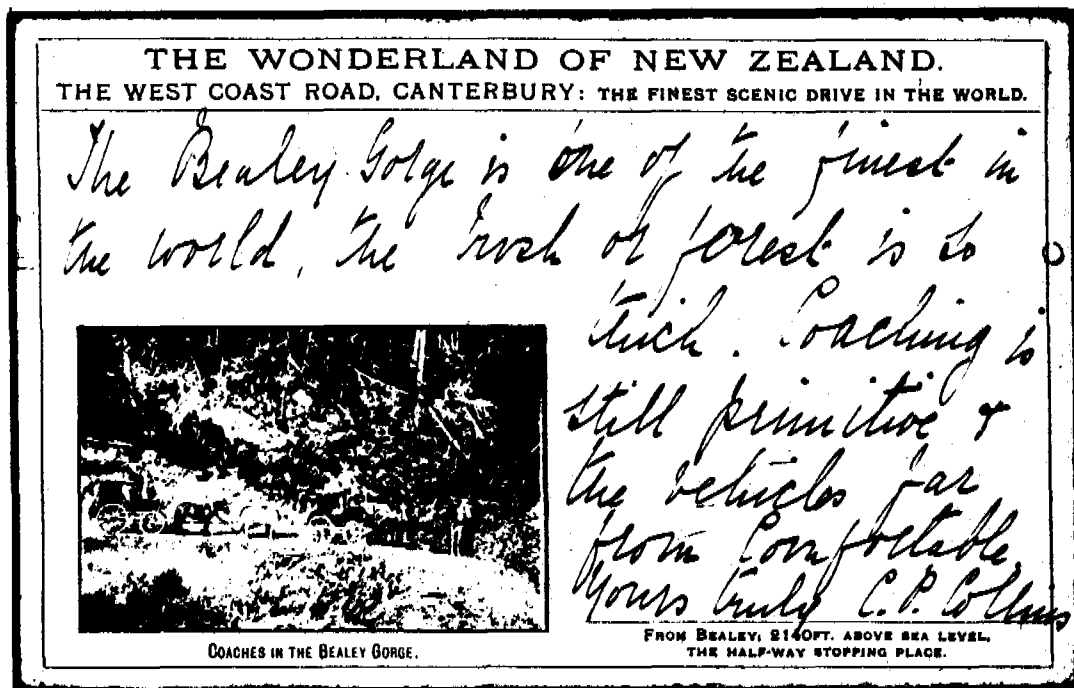 THE WONDERLAND OF NEW ZEALAND.
THE WEST COAST ROAD, CANTERBURY: THE FINEST SCENIC DRIVE IN THE WORLD.
The Bealey Gorge is one of the finest in
the world, the bush or forest is so
thick. Coaching is
still primitive &
the vehicles far
from Comfortable.
Yours truly C. P. Collins
FROM BEALEY, 2140FT. ABOVE SEA LEVEL,
THE HALF-WAY STOPPING PLACE.
COACHES IN THE BEALEY GORGE.